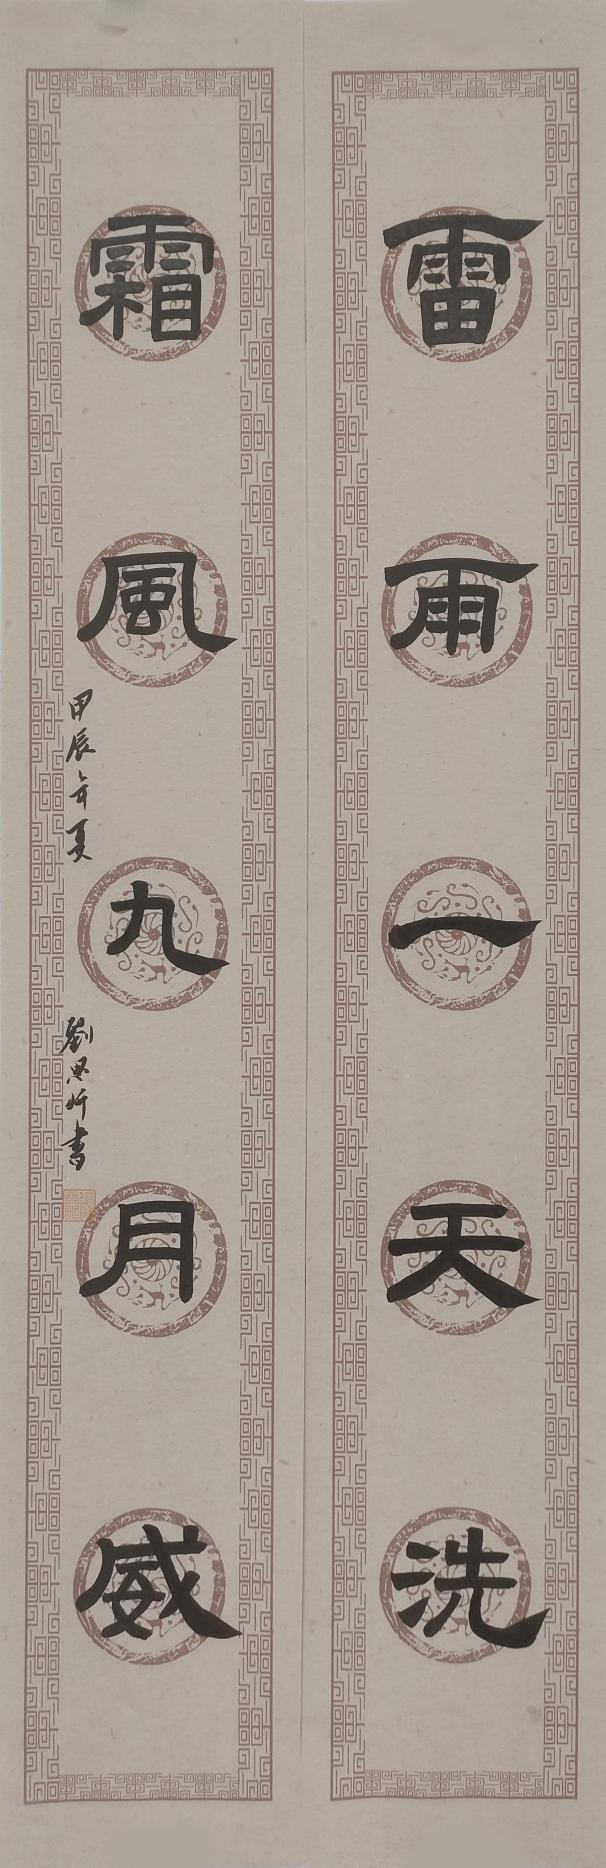 雷雨一天洗
霜風九月威
甲辰年夏
劉思忻書